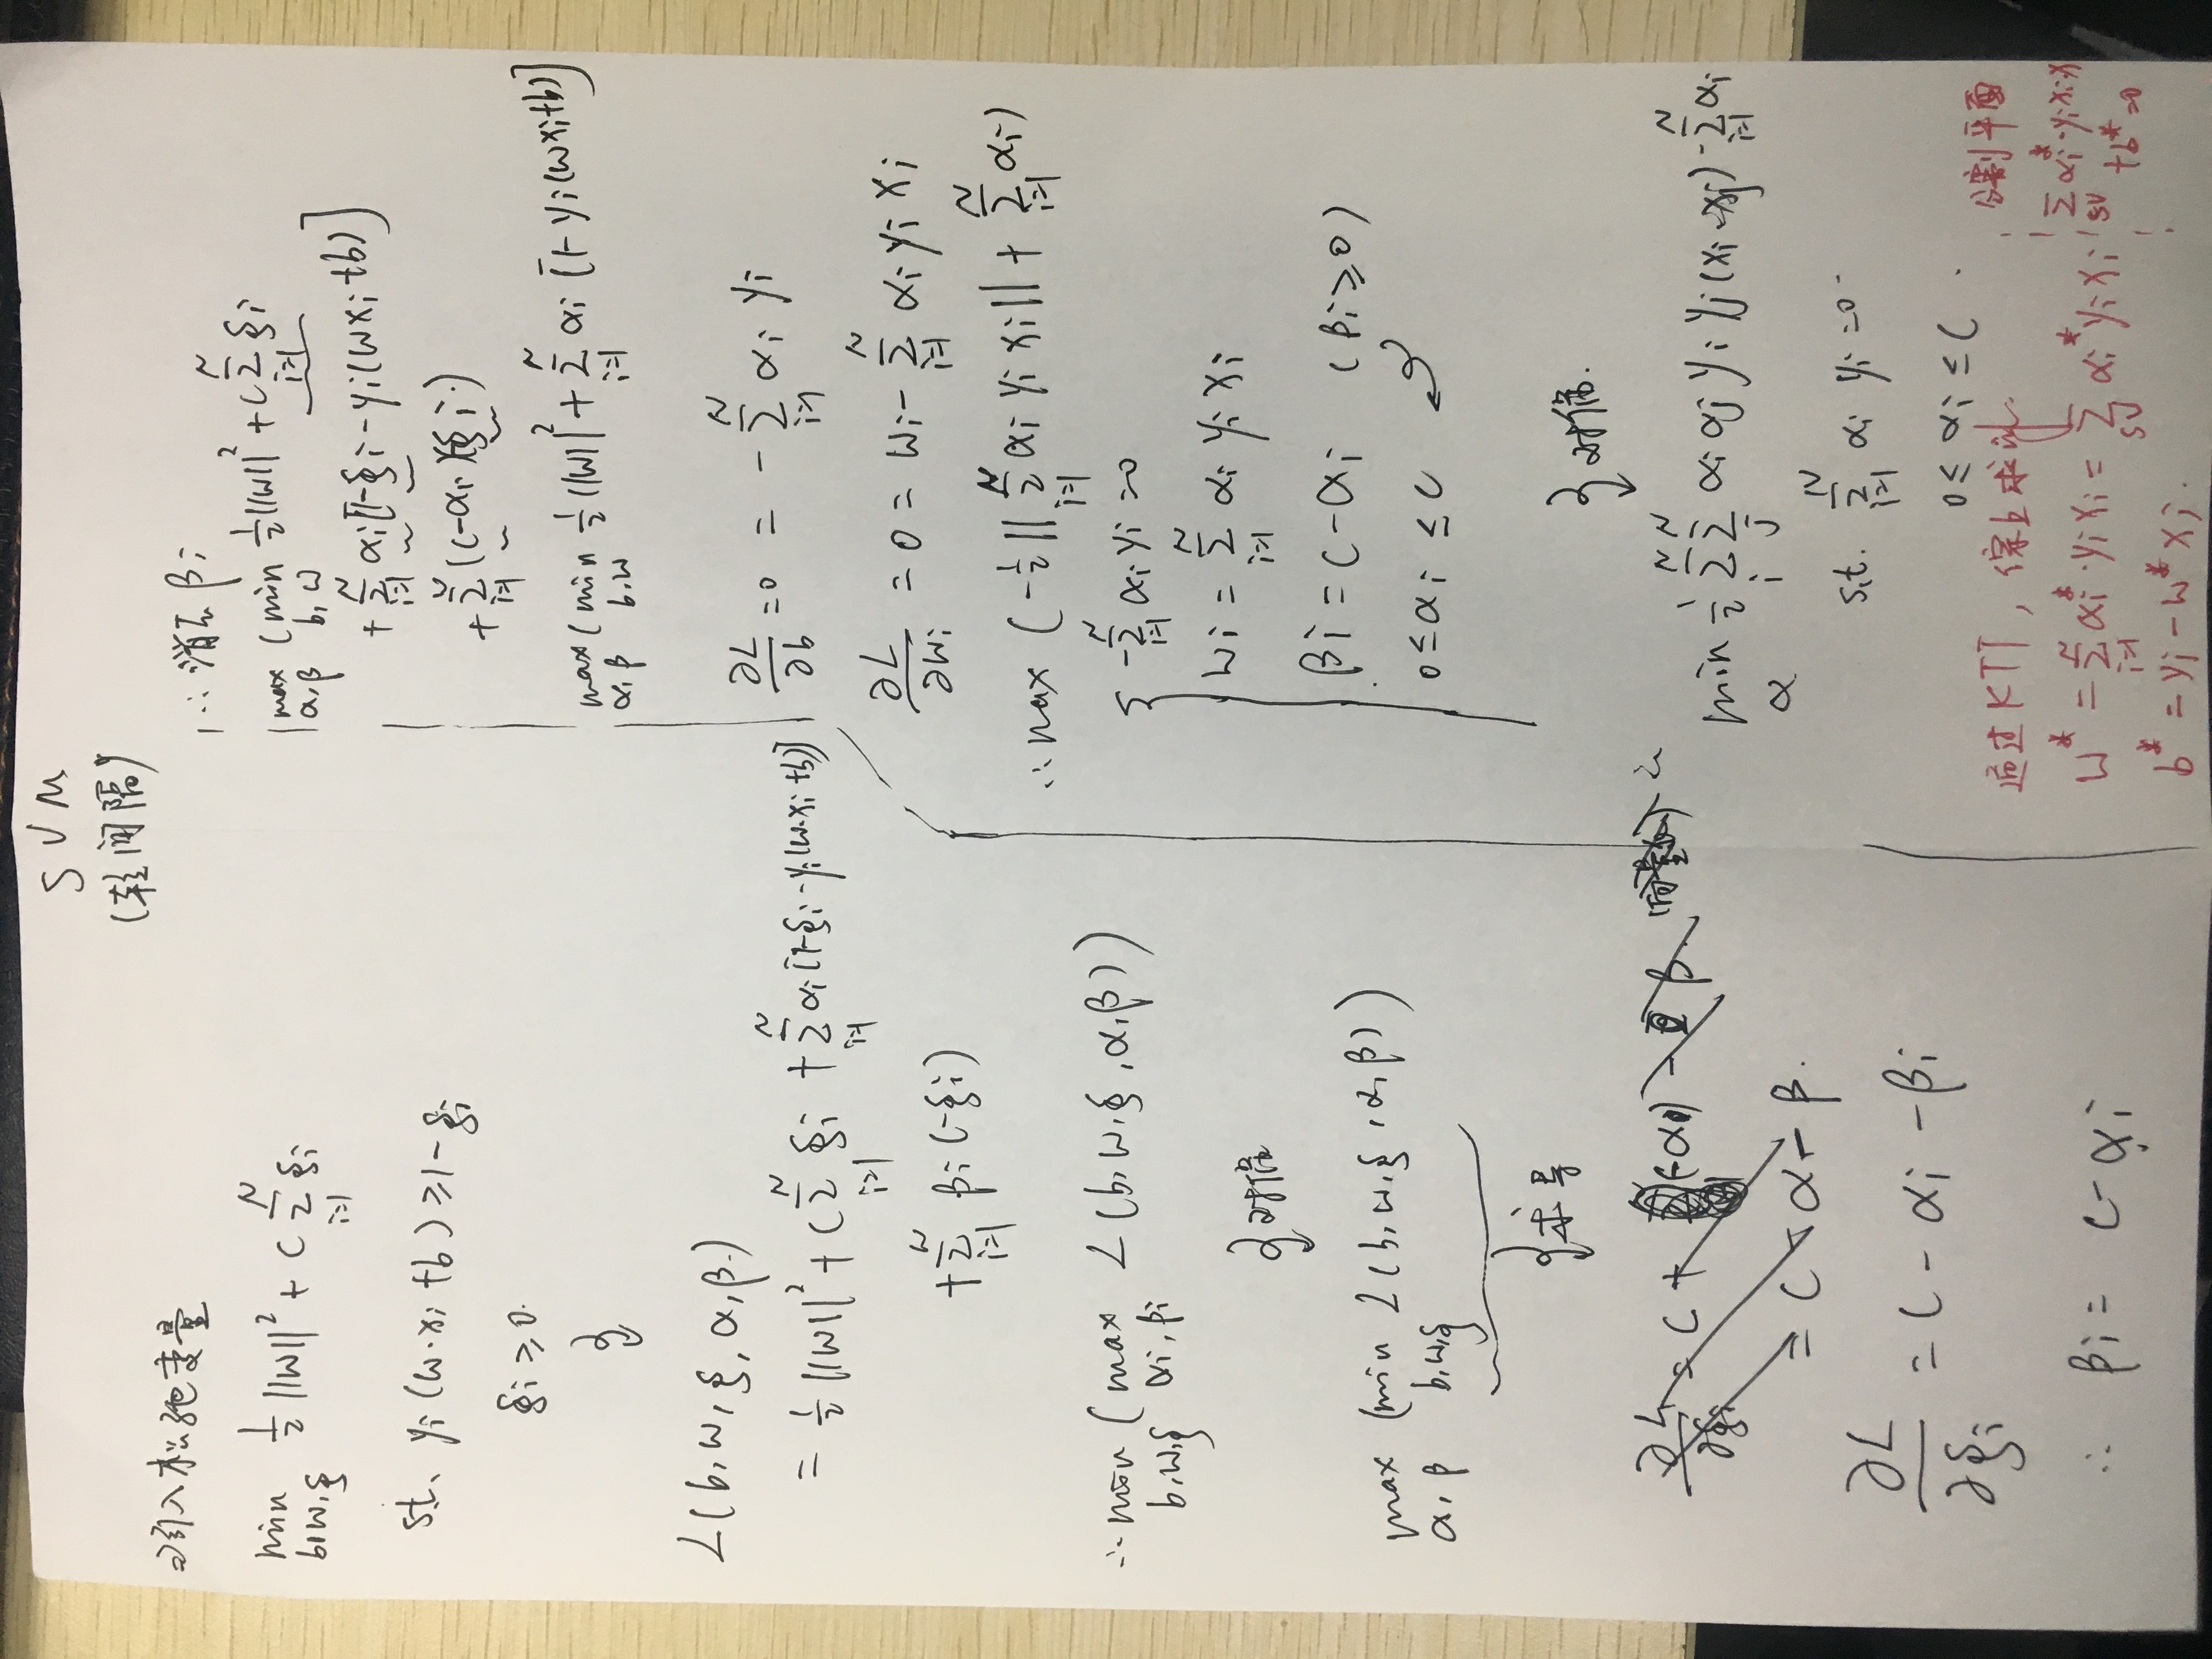 SVM
(软间隔)
⇒引入松弛变量
min 1/2 ||w||² + C Σ ξi
b,w,ξ i=1 N
s.t. yi(w·xi+b) ≥ 1-ξi
ξi ≥ 0.
L(b,w,ξ,α,β)
= 1/2 ||w||² + C Σ_{i=1}^N ξi + Σ_{i=1}^N αi[1-ξi-yi(w·xi+b)]
+ Σ_{i=1}^N βi(-ξi)
∴ min_{b,w,ξ} ( max_{αi,βi} L(b,w,ξ,α,β))
对偶
max_{α,β} (min_{b,w,ξ} L(b,w,ξ,α,β))
求导
∂L/∂ξi = C + (-αi) - β
= C - α - β.
∂L/∂ξi = C - αi - βi
∴ βi = C - αi
∴ 消去 βi
max_{α,β} (min_{b,w} 1/2||w||² + C Σ_{i=1}^N ξi
+ Σ_{i=1}^N αi[1-ξi-yi(wxi+b)]
+ Σ_{i=1}^N (C-αi)(-ξi)
max_{α,β} (min_{b,w} 1/2||w||² + Σ_{i=1}^N αi[1-yi(wxi+b)]
∂L/∂b = 0 = - Σ_{i=1}^N αi yi
∂L/∂wi = 0 = wi - Σ_{i=1}^N αi yi xi
∴ max (-1/2 || Σ_{i=1}^N αi yi xi || + Σ_{i=1}^N αi)
- Σ_{i=1}^N αi yi = 0
wi = Σ_{i=1}^N αi yi xi
βi = C - αi (βi ≥ 0)
0 ≤ αi ≤ C
对偶.
min_α 1/2 Σ_i^N Σ_j^N αi αj yi yj (xi·xj) - Σ_{i=1}^N αi
s.t. Σ_{i=1}^N αi yi = 0
0 ≤ αi ≤ C.
通过KTT, 综上求出.
w* = Σ_{i=1}^N αi*·yi xi = Σ_{SV} αi* yi xi
b* = yi - w* xi.
分割平面
Σ_{SV} αi*·yi xi·x
+b* = 0